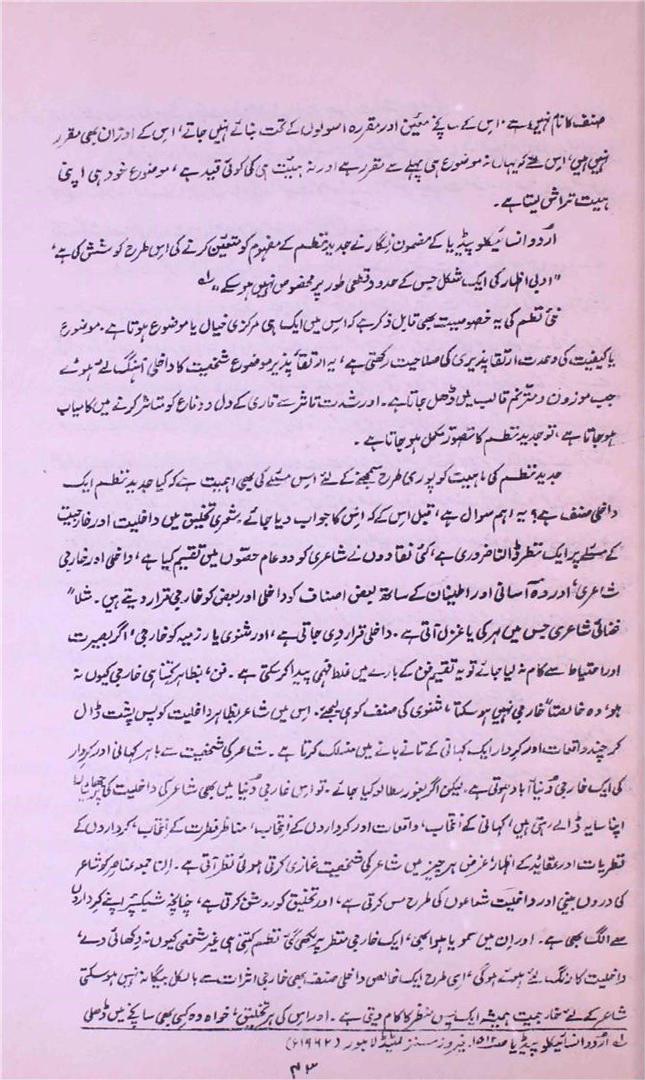 صنف کا نام نہیں ہے، اس کے سانچے معیّن اور مقررہ اصولوں کے تحت بنائے نہیں جاتے، اس کے اوزان بھی مقرر
نہیں ہیں، اس لئے کہ یہاں نہ موضوع ہی پہلے سے مقرر ہے اور نہ ہیئت ہی کی کوئی قید ہے، موضوع خود ہی اپنی
ہیئت تراش لیتا ہے۔
اُردو انسائیکلو پیڈیا کے مضمون نگار نے جدید نظم کے مفہوم کو متعیّن کرنے کی اس طرح کوشش کی ہے،
"ادبی اظہار کی ایک شکل جس کے حدود قطعی طور پر مخصوص نہیں ہو سکے"۱؎
نئی نظم کی یہ خصوصیت بھی قابلِ ذکر ہے کہ اس میں ایک ہی مرکزی خیال یا موضوع ہوتا ہے۔ موضوع
یا کیفیت کی وحدت ارتقا پذیری کی صلاحیت رکھتی ہے، یہ ارتقا پذیر موضوع شخصیت کا داخلی آہنگ لئے ہوئے
جب موزون و مترنم قالب میں ڈھل جاتا ہے۔ اور شدتِ تاثر سے قاری کے دل و دماغ کو متاثر کرنے میں کامیاب
ہو جاتا ہے، تو جدید نظم کا تصوّر مکمل ہو جاتا ہے۔
جدید نظم کی ماہیت کو پوری طرح سمجھنے کے لئے اس مسئلے کی بھی اہمیت ہے کہ کیا جدید نظم ایک
داخلی صنف ہے؟ یہ اہم سوال ہے، قبل اس کے کہ اس کا جواب دیا جائے۔ شعری تخلیق میں داخلیت اور خارجیت
کے مسئلے پر ایک نظر ڈالنا ضروری ہے، کئی نقادوں نے شاعری کو دو عام حصّوں میں تقسیم کیا ہے، داخلی اور خارجی
شاعری، اور وہ آسانی اور اطمینان کے ساتھ بعض اصناف کو داخلی اور بعض کو خارجی قرار دیتے ہیں۔ مثلاً
غنائی شاعری جس میں لیرک یا غزل آتی ہے۔ داخلی قرار دی جاتی ہے، اور مثنوی یا رزمیہ کو خارجی، اگر بصیرت
اور احتیاط سے کام نہ لیا جائے تو یہ تقسیم فن کے بارے میں غلط فہمی پیدا کر سکتی ہے۔ فن، بظاہر کتنا ہی خارجی کیوں نہ
ہو، وہ خالصتاً خارجی نہیں ہو سکتا، مثنوی کی صنف کو ہی لیجئے۔ اس میں شاعر بظاہر داخلیت کو پسِ پشت ڈال
کر چند واقعات اور کردار ایک کہانی کے تانے بانے میں منسلک کرتا ہے۔ شاعر کی شخصیت سے باہر کہانی اور کردار
کی ایک خارجی دُنیا آباد ہوتی ہے۔ لیکن اگر بغور مطالعہ کیا جائے۔ تو اس خارجی دُنیا میں بھی شاعر کی داخلیت کی پرچھائیاں
اپنا سایہ ڈالے رہتی ہیں، کہانی کے انتخاب، واقعات اور کرداروں کے انتخاب، مناظرِ فطرت کے انتخاب، کرداروں کے
نظریات اور عقائد کے اظہار، غرض ہر چیز میں شاعر کی شخصیت غمازی کرتی ہوئی نظر آتی ہے۔ ان تمام عناصر کو شاعر
کی دروں بینی اور داخلیت شعاعوں کی طرح مس کرتی ہے، اور تخلیق کو روشن کرتی ہے، چنانچہ شیکسپئر اپنے کرداروں
سے الگ بھی ہے۔ اور ان میں سمویا ہوا بھی، ایک خارجی منظر پر لکھی گئی نظم کتنی ہی غیر شخصی کیوں نہ دکھائی دے،
داخلیت کا رنگ لئے ہوئے ہوگی، اسی طرح ایک خالص داخلی صنف بھی خارجی اثرات سے بالکل بیگانہ نہیں ہو سکتی
شاعر کے لئے خارجیت ہمیشہ ایک پس منظر کا کام دیتی ہے۔ اور اس کی ہر تخلیق، خواہ وہ کسی بھی سانچے میں ڈھلی
۱؎ اُردو انسائیکلو پیڈیا صہ ۱۵۱۲۔ فیروز سنز لمیٹڈ لاہور (۱۹۶۲ء)
۴۳